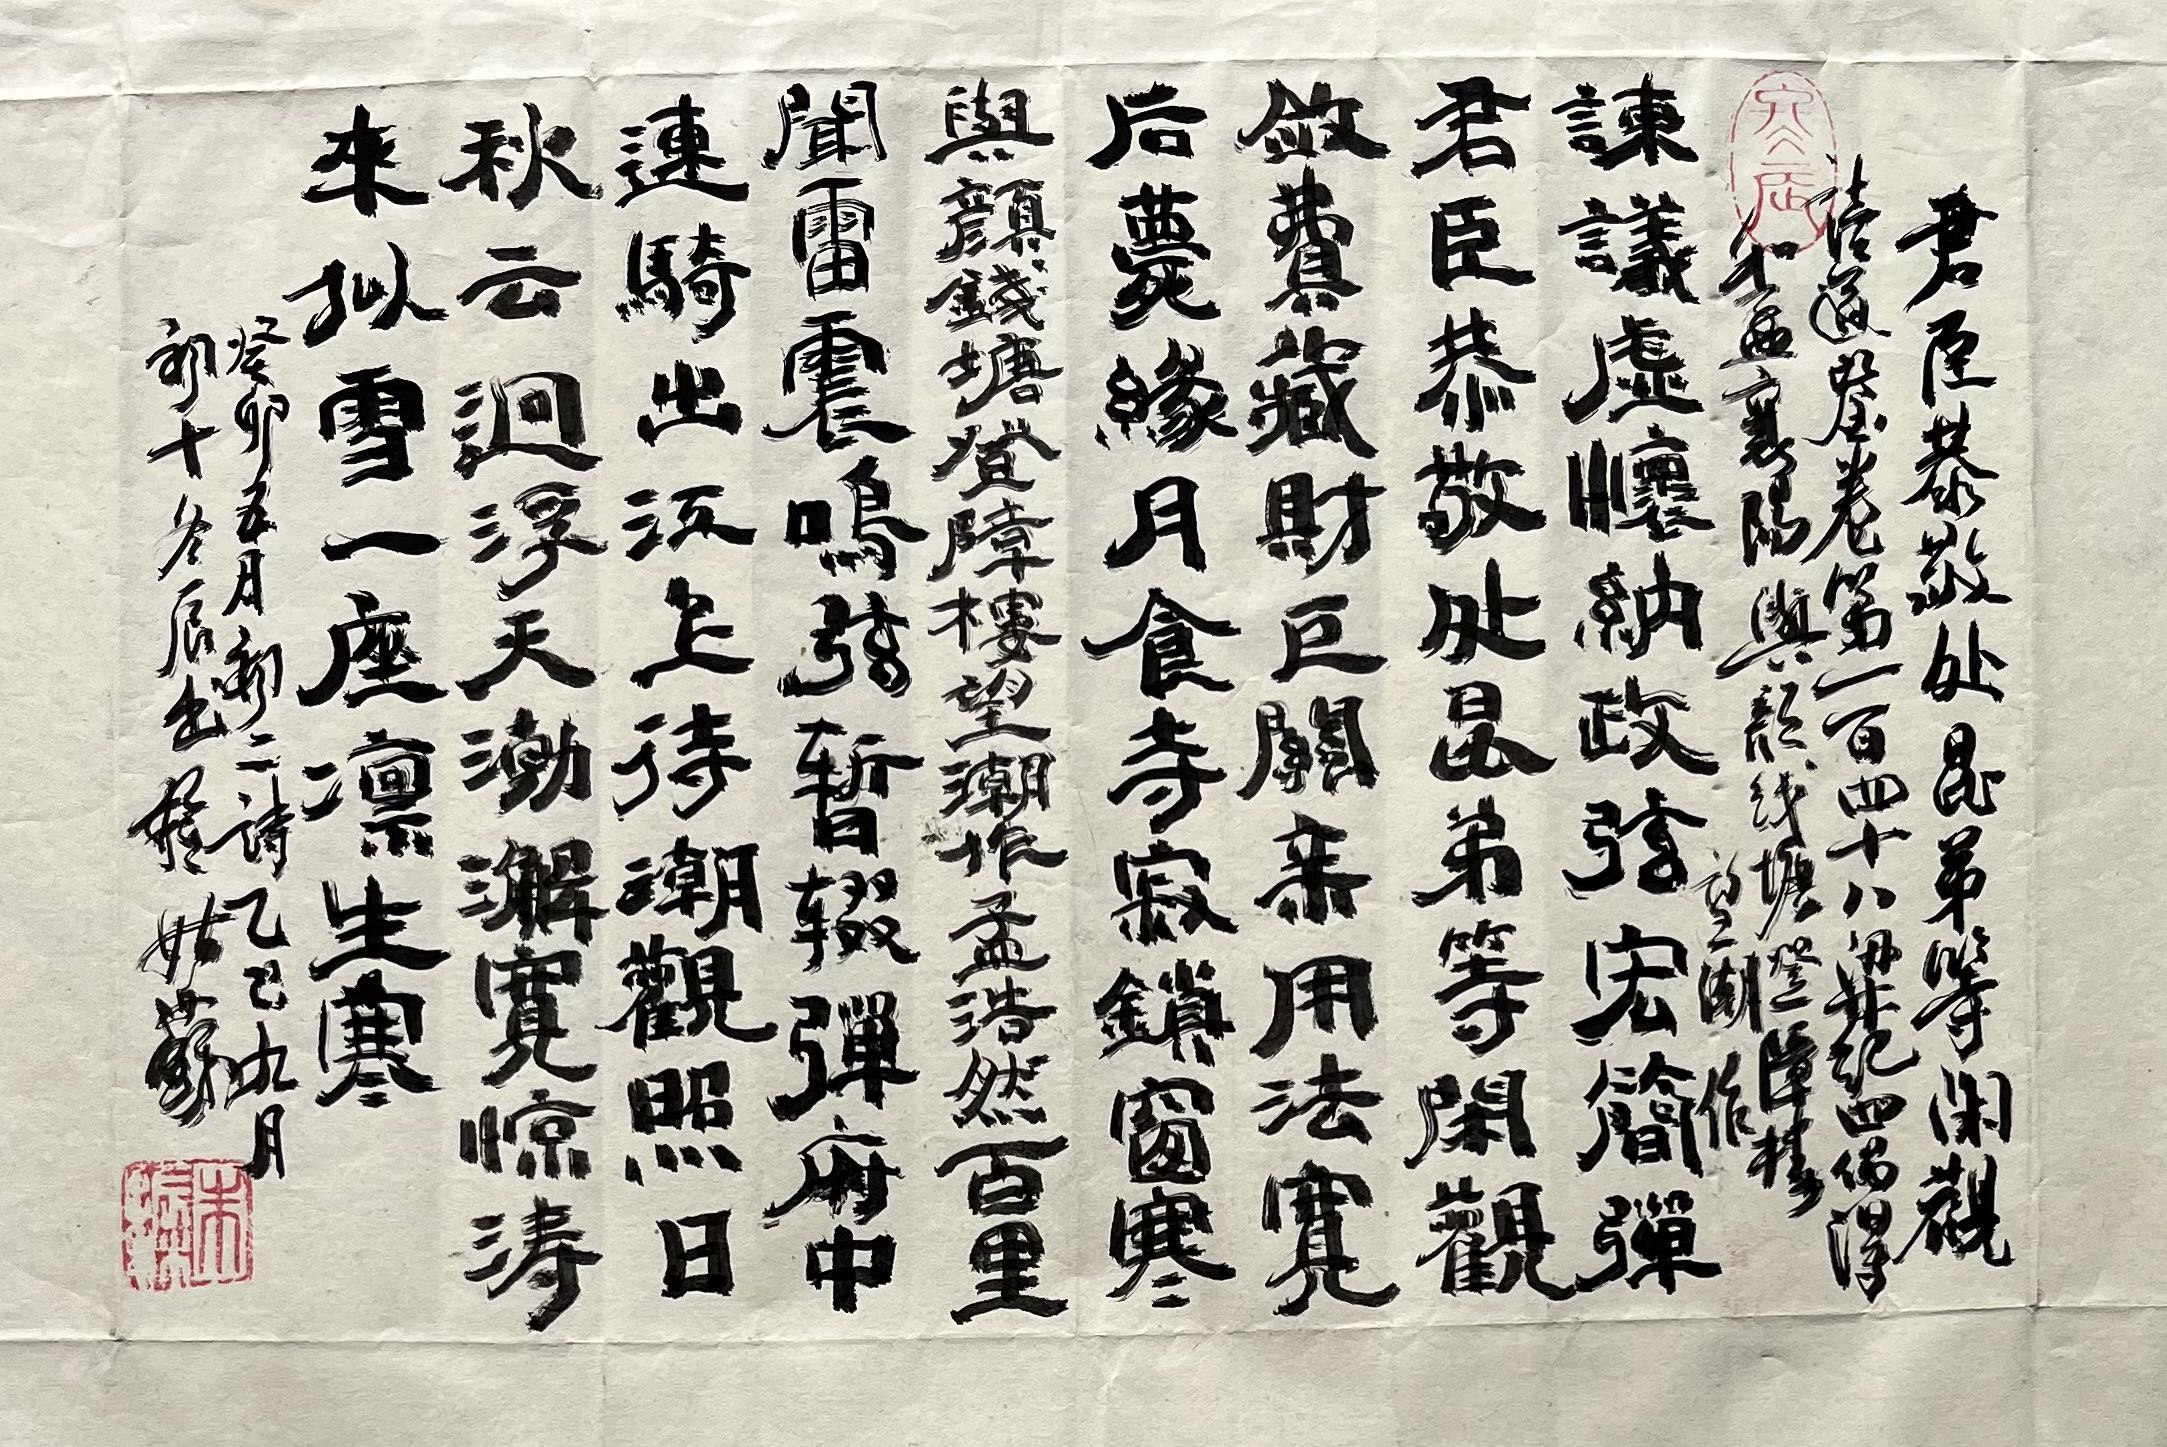 君臣恭敬处昆弟等闲觀
读通鉴卷第一百四十八册梁纪四偶得
和孟襄陽與颜钱塘登障樓
望潮作
諫議虛懷納政弦宏簡彈
君臣恭敬处昆弟等閑觀
斂費藏財巨關亲用法寬
后薨緣月食寺寂鎖窗寒
與顏錢塘登障樓望潮作孟浩然百里
聞雷震鳴弦暫輟彈府中
連騎出江上待潮觀照日
秋云迥浮天渤澥寬惊涛
來似雪一座凛生寒
癸卯五月初二詩乙巳九月
初十冬辰书於姑蘇